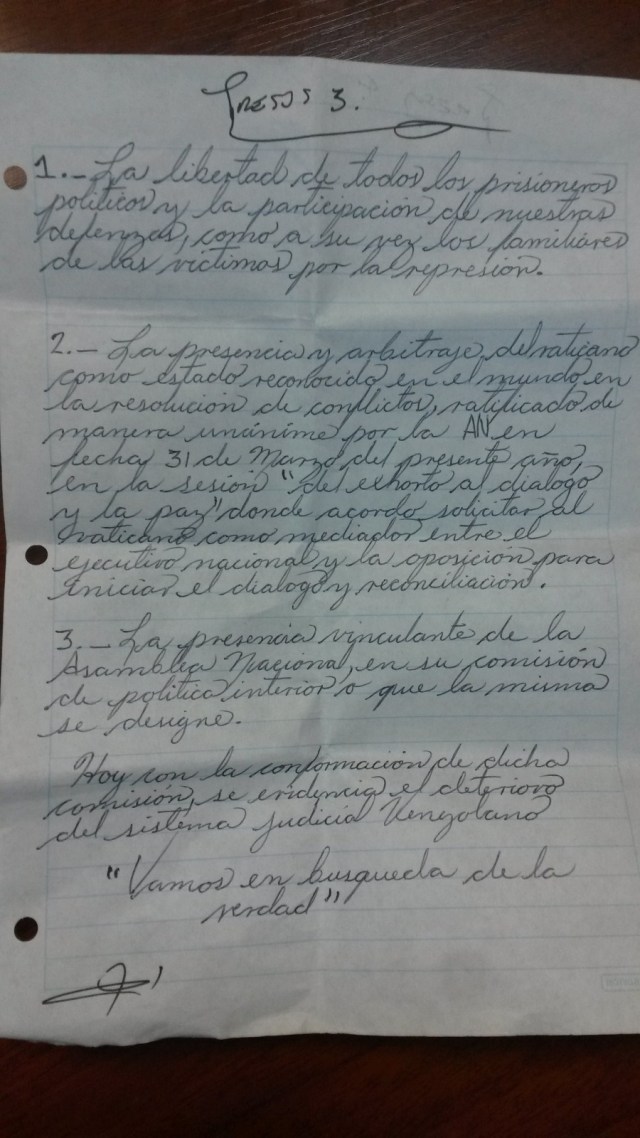 Presos 3.
1.- La libertad de todos los prisioneros
politicos y la participación de nuestras
defenzas, como a su vez los familiares
de las victimas por la represión.
2.- La presencia y arbitraje, del vaticano
como estado reconocido en el mundo en
la resolución de conflictos, ratificado de
manera unánime por la AN en
fecha 31 de Marzo del presente año,
en la sesión "del exhorto al dialogo
y la paz" donde acordo solicitar al
Vaticano como mediador entre el
ejecutivo nacional y la oposición para
Iniciar el dialogo y reconciliación.
3.- La presencia vinculante de la
Asamblea Nacional, en su comisión
de politica interior o que la misma
se designe.
Hoy con la conformación de dicha
comisión, se evidencia el deterioro
del sistema judicia Venezolano
"Vamos en busqueda de la
verdad"